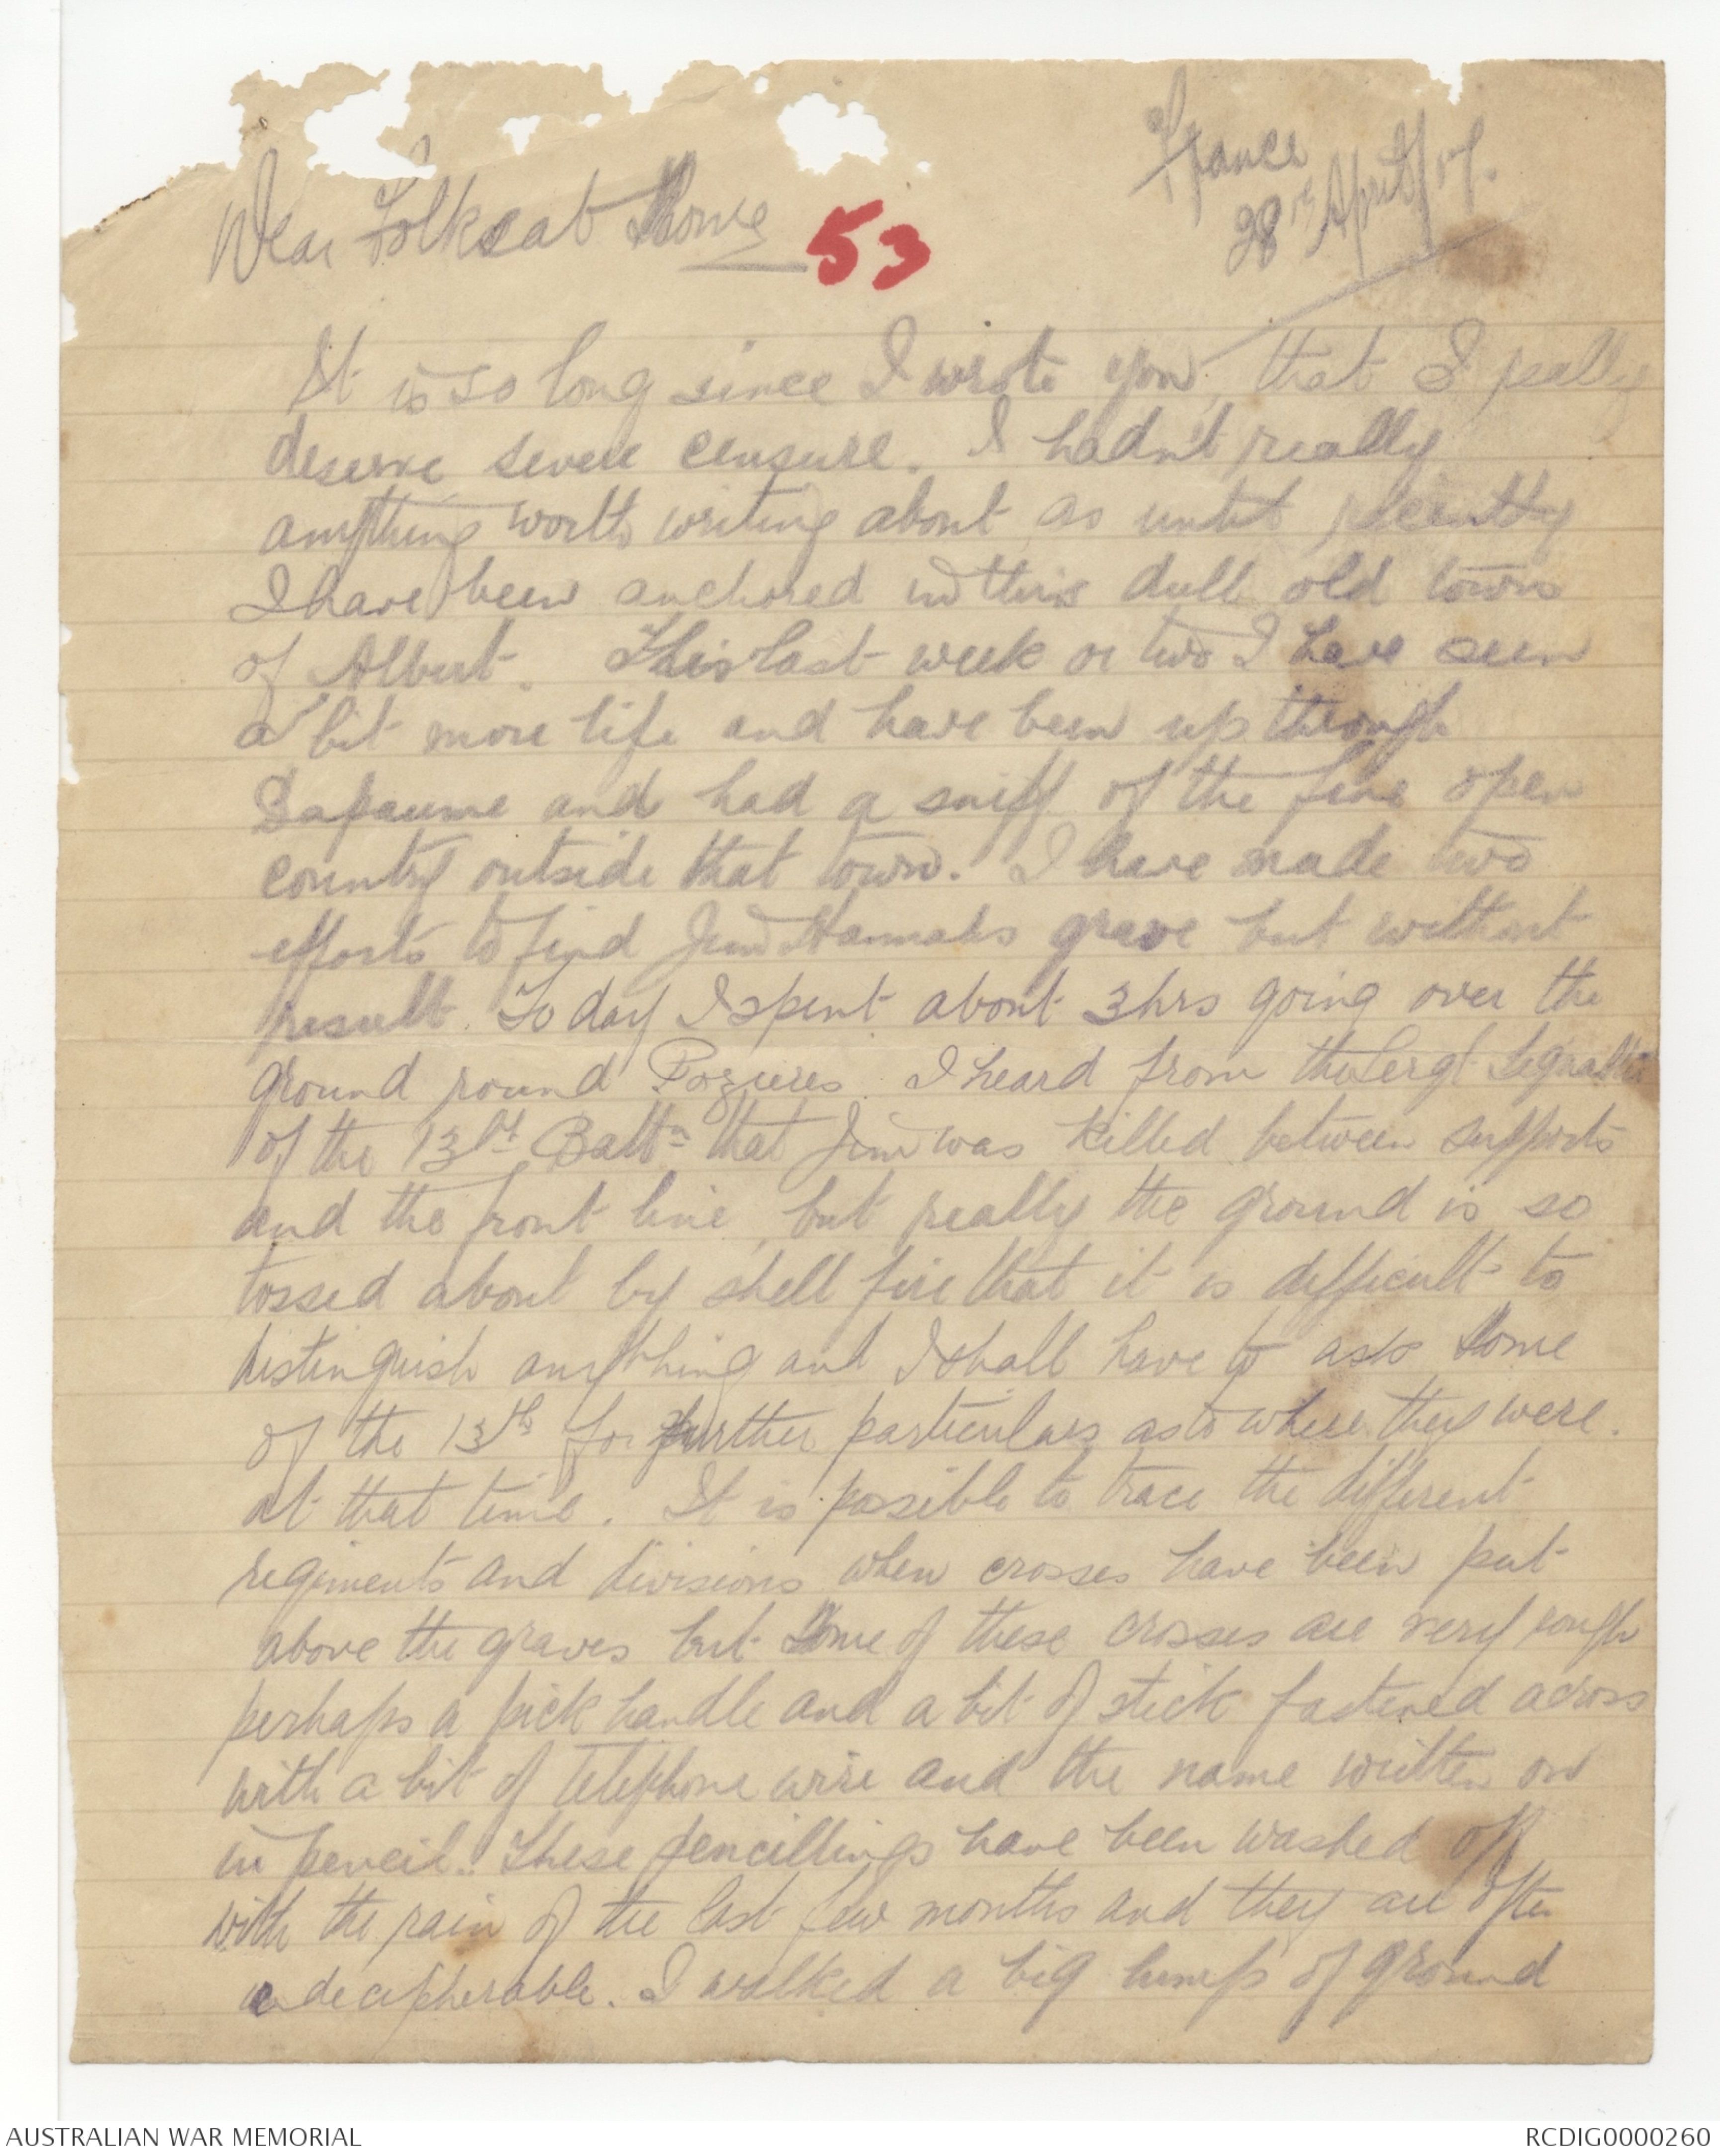 France
28th April/17.
Dear Folks at Home
53
It is so long since I wrote you, that I really
deserve severe censure. I hadn't really
anything worth writing about as until recently
I have been anchored in this dull old town
of Albert. This last week or two I have seen
a bit more life and have been up through
Bapaume and had a sniff of the fine open
country outside that town. I have made two
efforts to find Jim Hannahs grave but without
result. To day I spent about 3 hrs going over the
ground round Pozieres. I heard from the Sergt Signaller
of the 13th Battn that Jim was killed between supports
and the front line, but really the ground is so
tossed about by shell fire that it is difficult to
distinguish anything and I shall have to ask some
of the 13th for further particulars as to where they were.
at that time. It is possible to trace the different
regiments and divisions when crosses have been put
above the graves but some of these crosses are very rough
perhaps a pick handle and a bit of stick fastened across
with a bit of telephone wire and the name written on
in pencil. These pencillings have been washed off
with the rain of the last few months and they are often
undecipherable. I walked a big lump of ground
AUSTRALIAN WAR MEMORIAL
RCDIG0000260